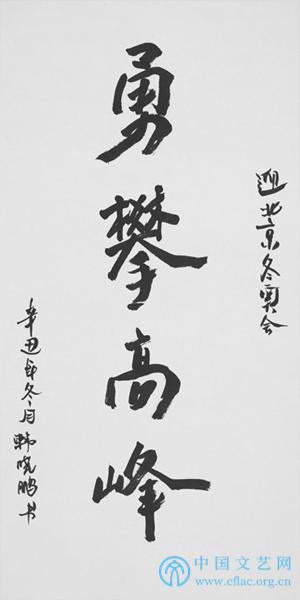 迎北京冬奥会
勇攀高峰
辛丑年冬月韩晓鹏书
中国文艺网
www.cflac.org.cn